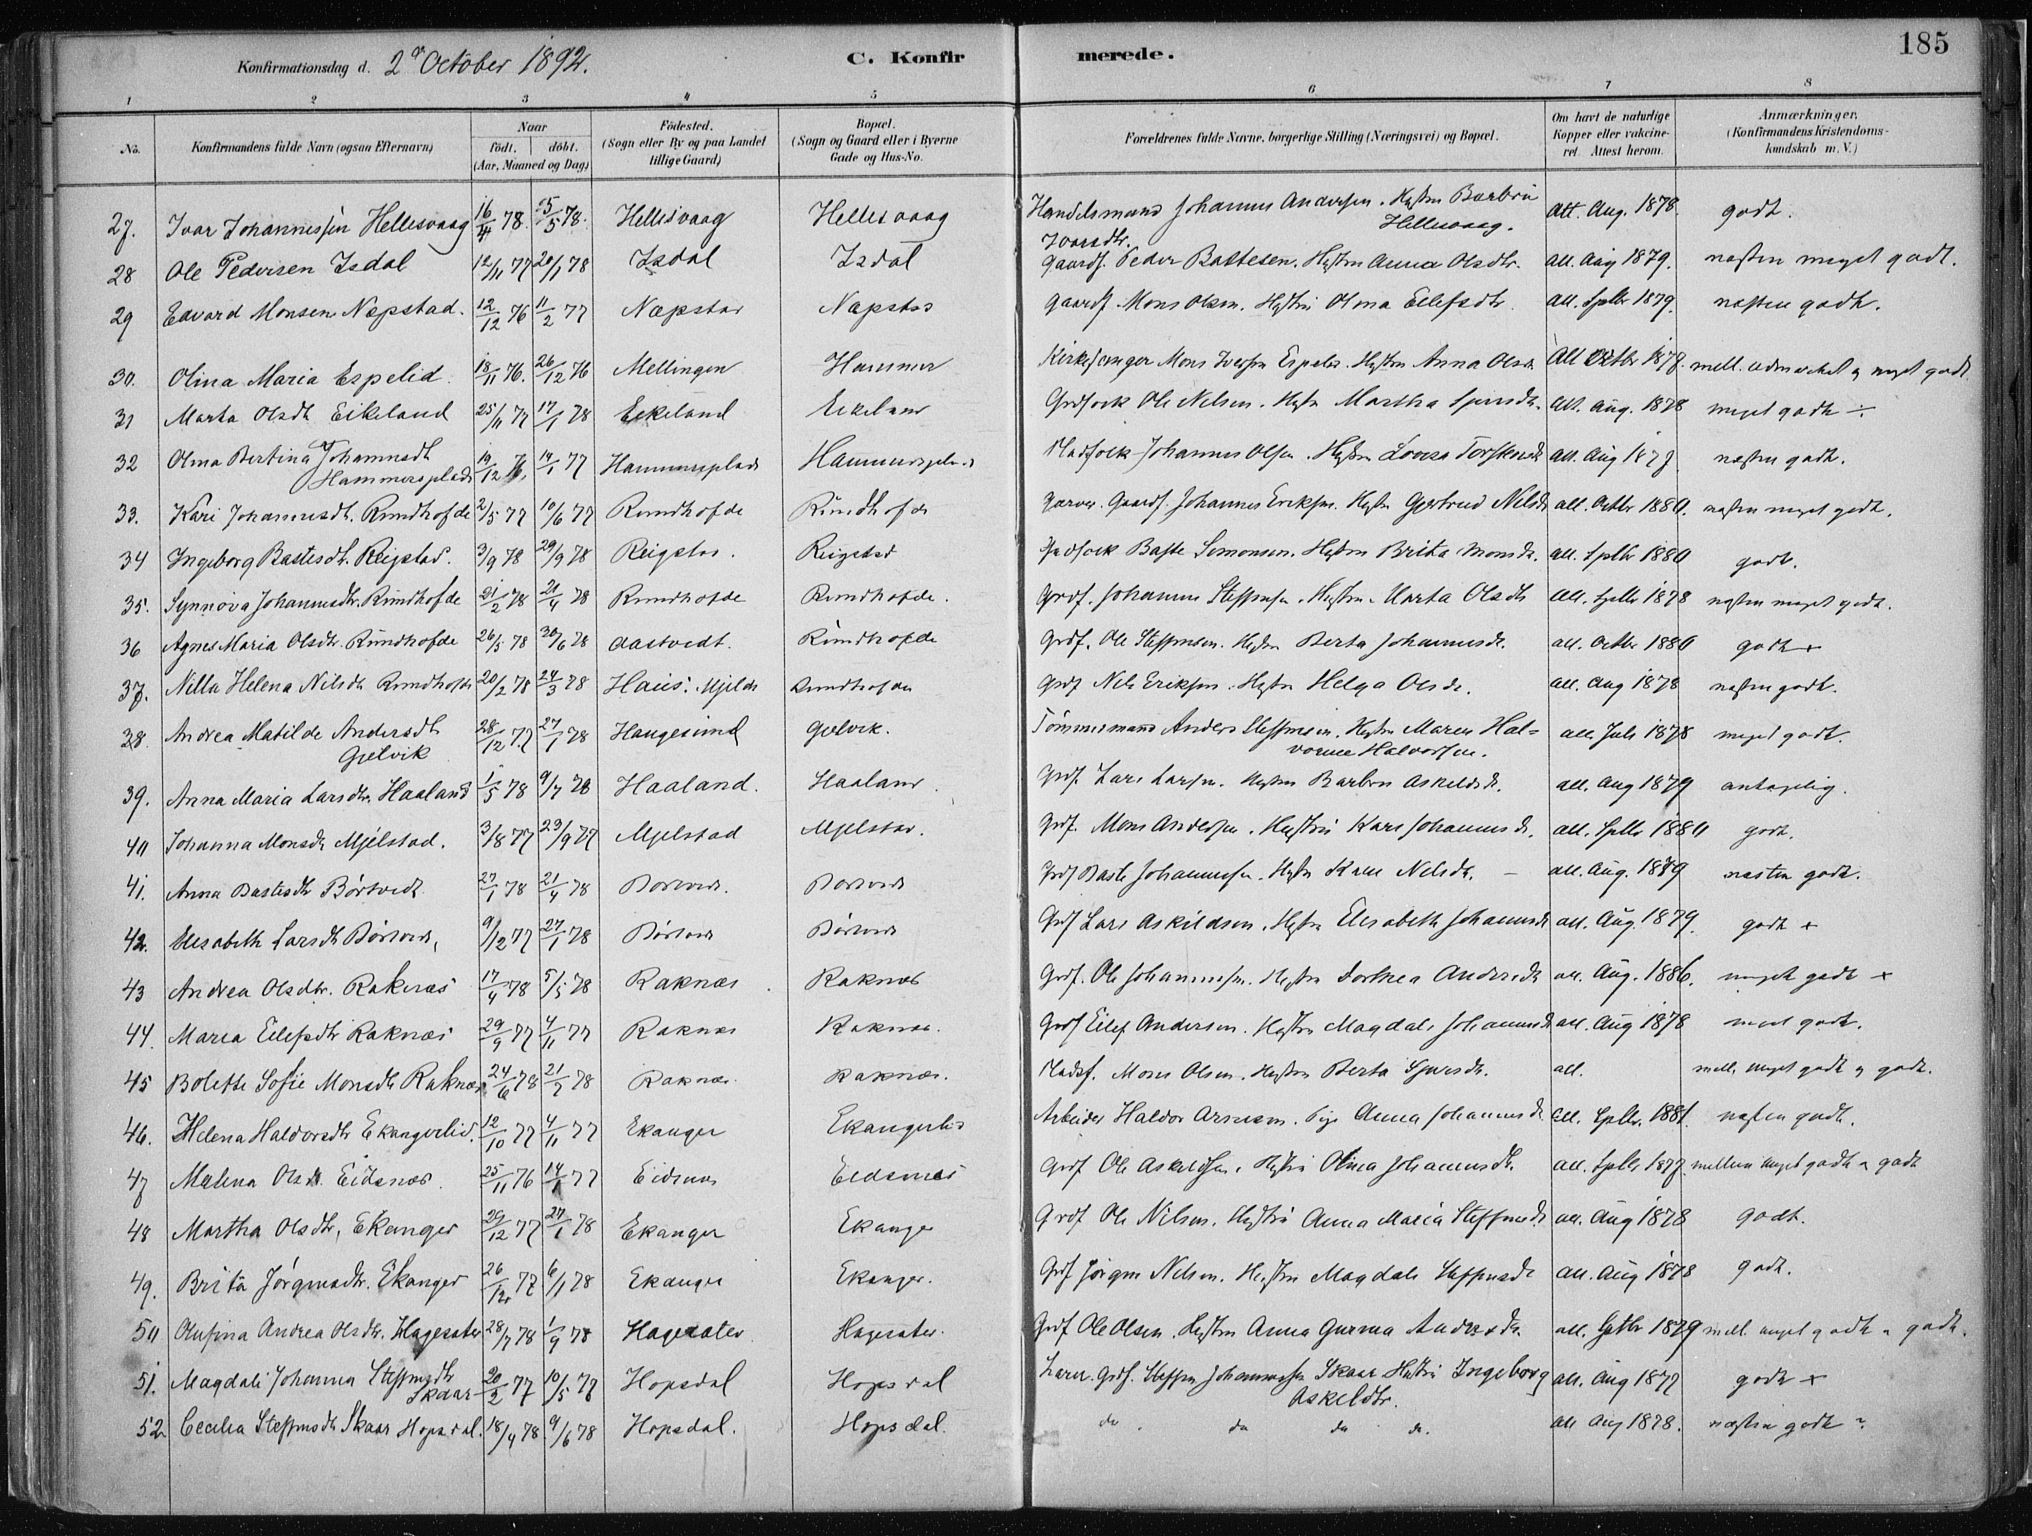 185
Konfirmationsdag d. 2den October 1892. C. Konfirmerede.
1 2 3 4 5 6 7 8
No. Konfirmandens fulde Navn (ogsaa Efternavn) Naar født. døbt. (Aar, Maaned og Dag) Fødested. (Sogn eller By og paa Landet tillige Gaard) Bopæl. (Sogn og Gaard eller i Byerne Gade og Hus-No. Forældrenes fulde Navne, borgerlige Stilling (Næringsvei) og Bopæl. Om havt de naturlige Kopper eller vakcineret. Attest herom. Anmærkninger. (Konfirmandens Kristendomskundskab m. V.)
27. Ivar Johannessen Hellesvaag 16/4 78. 5/5 78. Hellisvaag Hellesvaag Handelsmand Johannes Andersen. Hustru Barbru Ivarsdtr. Hellesvaag. Att. Aug. 1878 godt.
28 Ole Pedersen Isdal 12/11 77 20/1 78 Isdal Isdal Gaardf. Peder Bastesen. Hustru Anna Olsdtr. all. Aug 1879. næsten meget godt.
29 Edvard Monsen Næpstad. 12/12 76 11/2 77 Næpstad Næpstad Gaardf Mons Olsen. Hustru Olina Eilefsdtr all. Septbr 1879. næsten godt.
30. Olina Maria Espelid. 18/11 76. 26/12 76 Mellingen Hammer Kirkesanger Mons Iversen Espelid. Hustru Anna Olsdtr All Octbr 1878. mell. udmærket og meget godt
31 Marta Olsdtr Eikeland 25/11 77 17/1 78 Eikeland Eikeland Grdfolk Ole Nelsen. Hustru Martha Sjursdtr. All. Aug. 1878 meget godt ÷
32 Olina Bertina Johannesdtr Hammersplads 19/12 76. 14/1 77 Hammersplads Hammersplads Pladsfolk Johannes Olsen. Hustru Lovisa Torstensdtr all. Aug 187 næsten godt.
33. Kari Johannesdtr. Rundhofde 2/5 77 10/6 77 Rundhofde Rundhofde Garver. Gaardf. Johannes Eriksen. Hustru Gjertrud Nilsdtr all. Octbr 1880. næsten meget godt.
34 Ingeborg Bastesdtr. Reigstad. 3/9 78 29/9 78 Reigstad. Reigstad Pladsfolk Baste Simonsen. Hustru Brita Monsdtr. all. Septbr 1880 godt.
35. Synnøva Johannesdtr. Rundhofde 21/2 78 21/4 78 Rundhofde Rundhofde. Grdf. Johannes Steffensen. Hustru Marta Olsdtr all. Septbr 1878 næsten meget godt.
36 Agnes Maria Olsdtr. Rundhofde 26/5 78 30/6 78 Aastvedt. Rundhofde Grdf. Ole Steffensen. Hustru Berta Johannesdtr. all. Octbr 1880 godt +
37. Nilla Helena Nilsdtr Rundhofde 20/2 78 24/3 78 Haus. Mjelde Rundhofde Grdf Nils Eriksen. Hustru Helga Olsdtr. all. Aug 1878 næsten godt.
38. Andrea Matilde Andersdtr Gjelvik 28/12 77 27/1 78 Haugesund Gjelvik. Tømmermand Anders Steffensen. Hustru Maren Halvorine Halvorsen. all. Juli 1878 meget godt.
39. Anna Maria Larsdtr. Haaland 1/5 78 9/7 78 Haaland. Haaland Grdf. Lars Larsen. Hustru Barbru Askeldsdtr. all. Aug 1879 antagelig.
40 Johanna Monsdtr Mjelstad. 3/8 77 23/9 77 Mjelstad Mjelstad. Grdf. Mons Andersen. Hustru Kari Johannesdtr. all. Septbr 1880 godt.
41. Anna Bastesdtr Børtvedt 27/1 78 21/4 78 Bortvedt. Bortvedt Grdf Baste Johannessen. Hustru Kari Nilsdtr. all. Aug. 1879 næsten godt.
42. Elisabeth Larsdtr Børtvedt, 9/12 77 27/1 78 Børtvedt Børtvedt Grdf Lars Askildsen. Hustru Elisabeth Johannesdtr all. Aug. 1879. godt +
43 Andrea Olsdtr. Raknæs 17/4 78 5/5 78 Raknæs Raknæs Grdf. Ole Johannessen. Hustru Dorthea Andersdtr all. Aug. 1886. meget godt +
44. Maria Eilefsdtr Raknæs 29/9 77 4/11 77 Raknæs Raknæs. Grdf Eilef Andersen. Hustru Magdali Johannesdtr all. Aug 1878 meget godt.
45 Bolette Sofie Monsdtr Raknæs 24/6 78 21/7 78 Raknæs. Raknæs. Pladsf. Mons Olsen. Hustru Berta Sjursdtr. all. mell. meget godt og godt.
46. Helena Haldorsdtr Ekangerlid. 12/10 77 4/11 77 Ekanger Ekangerlid Arbeider Haldor Arnesen. Pige Anna Johannesdtr all. Septbr. 1881. næsten godt.
47 Malena Olsdtr. Eidsnæs 25/11 76 14/1 77 Eidsnæs Eidsnæs Grdf Ole Askeldsen. Hustru Olina Johannesdtr. all. Septbr 1877. mellem meget godt og godt
48 Martha Olsdtr, Ekanger 29/12 77 27/1 78 Ekanger Ekanger Grdf Ole Nilsen. Hustru Anna Maria Steffensdtr all. Aug 1878 godt.
49. Brita Jørgensdtr. Ekanger 26/12 77 6/1 78 Ekanger Ekanger. Grdf Jørgen Nelsen. Hustru Magdali Steffensdtr all. Aug 1878 godt.
50 Olufina Andrea Olsdtr. Hagesæter 28/7 78 1/9 78 Hagesæter Hagesæter. Grdf Ole Olsen. Hustru Anna Gurina Andersdtr. all. Septbr 1879 mell. meget godt og godt.
51. Magdali Johanna Steffensdtr Skaar 20/2 77 10/5 77 Hopsdal Hopsdal Lærer. Grdf. Steffen Johannessen Skaar Hustru Ingeborg Askeldtr. all. Aug 1877 godt +
52 Cecilia Steffensdtr Skaar Hopsdal. 18/4 78 9/6 78 Hopsdal. Hopsdal. do do do do. all Aug 1878. næsten godt